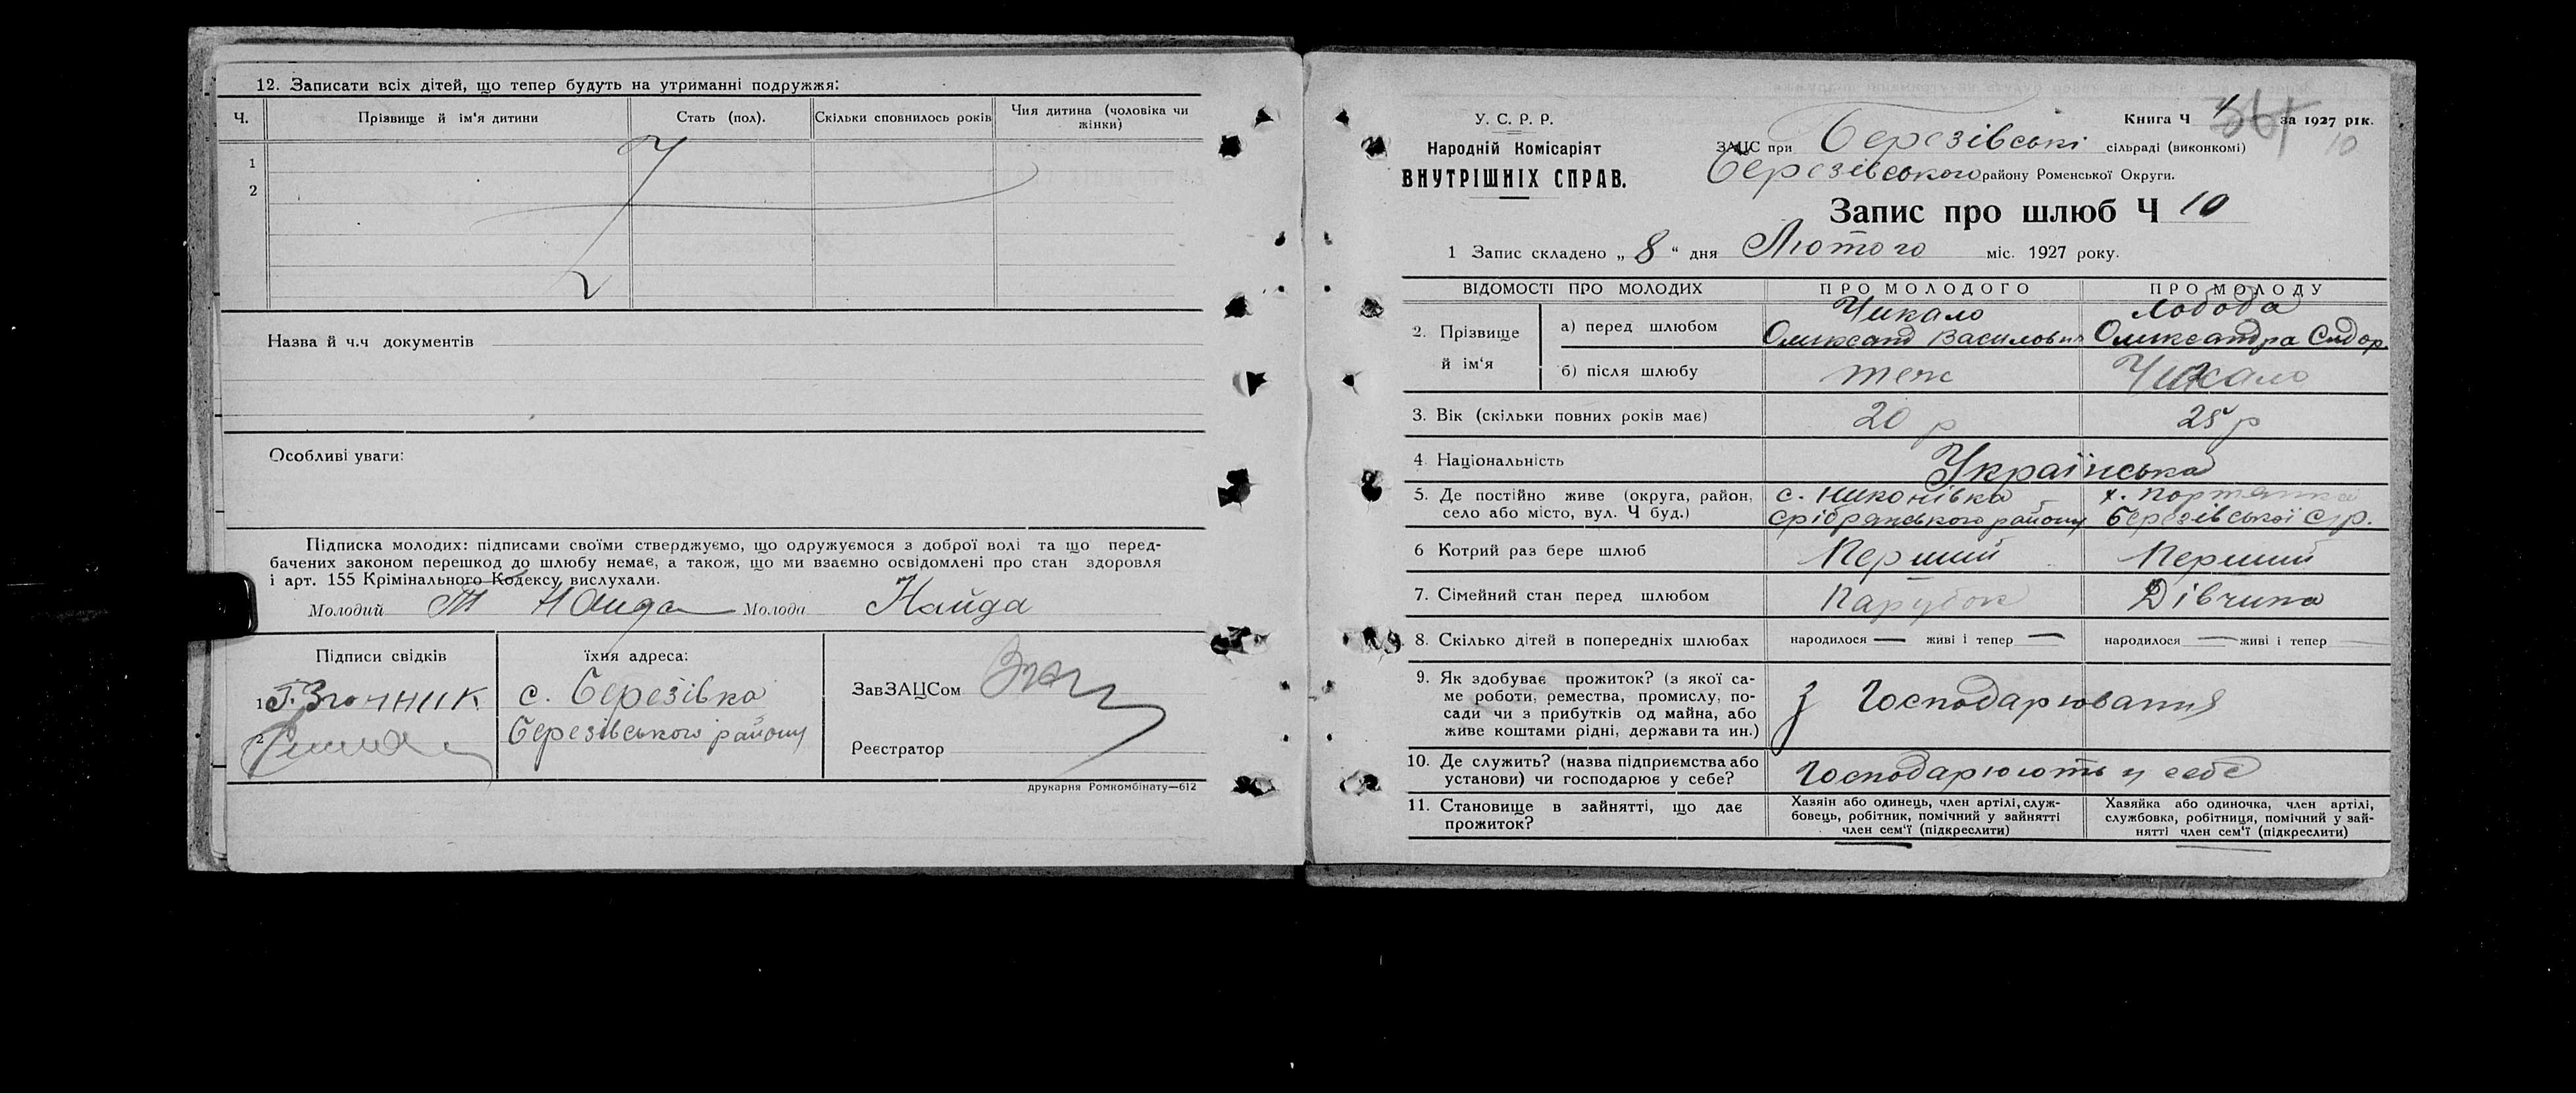 12. Записати всіх дітей, що тепер будуть на утриманні подружжя:
Ч.
Прізвище й ім'я дитини
Стать (пол).
Скільки сповнилось років
Чия дитина (чоловіка чи жінки)
1
2
Назва й ч.ч документів
Особливі уваги:
Підписка молодих: підписами своїми стверджуємо, що одружуємося з доброї волі та що перед-
бачених законом перешкод до шлюбу немає, а також, що ми взаємно освідомлені про стан здоровля
і арт. 155 Крімінального Кодексу вислухали.
Молодий Найда Молода Найда
Підписи свідків
їхня адреса:
1
с. Березівка
2
Березівського району
ЗавЗАЦСом
Реєстратор
друкарня Ромкомбінату—612
У. С. Р. Р.
Народній Комісаріят
ВНУТРІШНІХ СПРАВ.
Книга Ч 1 за 1927 рік.
10
ЗАЦС при Березівські сільраді (виконкомі)
Березівського району Роменської Округи.
Запис про шлюб Ч 10
1 Запис складено „ 8 “ дня Лютого міс. 1927 року.
ВІДОМОСТІ ПРО МОЛОДИХ
ПРО МОЛОДОГО
ПРО МОЛОДУ
2. Прізвище й ім'я
а) перед шлюбом
Чикало
Олександ Василович
Лобода
Олександра Сидор.
б) після шлюбу
теж
Чикало
3. Вік (скільки повних років має)
20 р
25 р
4 Національність
Українська
5. Де постійно живе (округа, район,
село або місто, вул. Ч буд.)
с. Никонівка
Срібрянського району
х. Портянка
Березівської с/р.
6 Котрий раз бере шлюб
Перший
Перший
7. Сімейний стан перед шлюбом
Парубок
Дівчина
8. Скілько дітей в попередніх шлюбах
народилося — живі і тепер —
народилося — живі і тепер
9. Як здобуває прожиток? (з якої са-
ме роботи, ремества, промислу, по-
сади чи з прибутків од майна, або
живе коштами рідні, держави та ин.)
З Господарювання
10. Де служить? (назва підприємства або
установи) чи господарює у себе?
Господарюють у себе
11. Становище в зайнятті, що дає
прожиток?
Хазяїн або одинець, член артілі, служ-
бовець, робітник, помічний у зайнятті
член сем'ї (підкреслити)
Хазяйка або одиночка, член артілі,
службовка, робітниця, помічний у зай-
нятті член сем'ї (підкреслити)